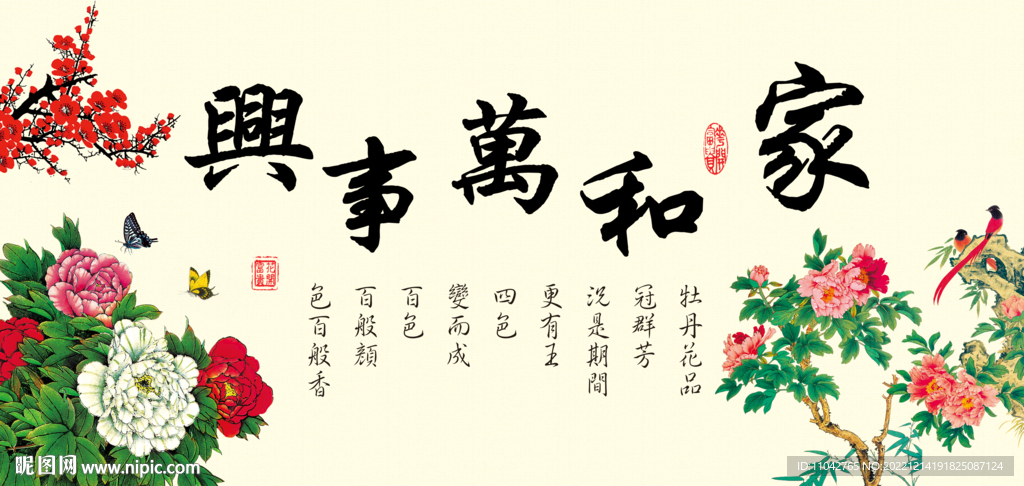 家和萬事興
牡丹花品
冠群芳
況是期間
更有王
四色
變而成
百色
百般顏
色百般香
花開富貴
昵图网 www.nipic.com
ID:11042765 NO:20221214191825087124